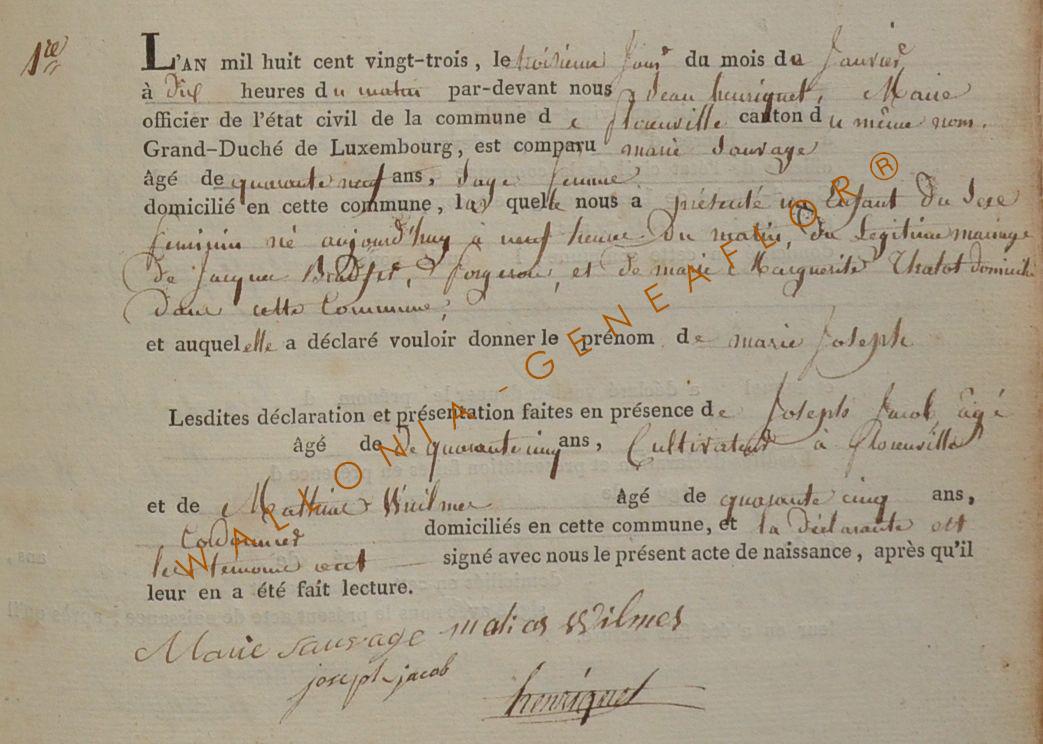 1re
L'AN mil huit cent vingt-trois, le troisieme jour du mois du Janvier
à dix heures du matin par-devant nous Jean henriquet, Maire
officier de l'état civil de la commune de florenville canton du même nom.
Grand-Duché de Luxembourg, est comparu marie Sauvage
âgé de quarante neuf ans, Sage femme
domicilié en cette commune, la quelle nous a présenté un Enfant du Sexe
feminin né aujourd'huy à neuf heure du matin, du Legitime mariage
de Jacque, forgeron, et de marie Marguerite Thatot domicilié
dans cette Commune,
et auquel elle a déclaré vouloir donner le prénom de marie Joseph
Lesdites déclaration et présentation faites en présence de Joseph Jacob âgé
âgé de de quarante cinq ans, Cultivateur à florenville
et de Mathias Wilmes âgé de quarante cinq ans,
Cordonnier domiciliés en cette commune, et la déclarante ett
les temoins ont signé avec nous le présent acte de naissance, après qu'il
leur en a été fait lecture.
Marie Sauvage matias Wilmes
joseph jacob
henriquet
WALLONIA-GENEAFLOR®